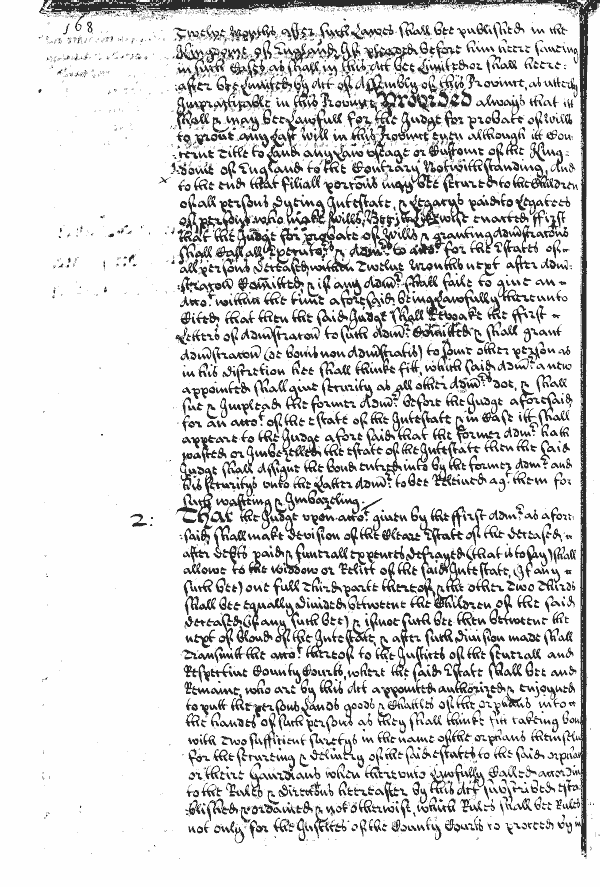 168
Twelve Months after such Lawes shall bee published in the
Kingdome of England, If pleaded before him heere sueing
in such Cases as shall in this Act bee Limited or shall heere:
after bee Limited by Act of Assembly of this Province, as utterly
Impractizable in this Province Provided always that itt
shall & may bee Lawfull for the Judge for probate of Wills
to prove any Last will in this Province even although itt Con
cerne Title to Land any Law vseage or Custome of the King:
dome of England to the Contrary Notwithstanding, And
to the end that filiall portions may bee secured to the Children
of all persons dyeing Intestate, & Legacys paid to Legatees
of persons who make Wills, Bee itt Likewise enacted ffirst
that the Judge for probate of Wills & granting Admstracons
shall Call all Executors & Admrs to acct for the Estates of
all persons deceased within Twelve Months next after Adm:
stracon Comitted & if any Admr shall faile to give an
Acco: within the time aforesaid being Lawfully thereunto
Cited that then the said Judge shall Revoake the ffirst
Letters of Admstracon to such Admr Comitted & shall grant
Admstracon (de bonis non Admstratis) to some other person as
in his discretion hee shall thinke fitt, which said Admr a new
appointed shall give security as all other Admrs doe, & shall
sue & Implead the former Admr before the Judge aforesaid
for an acco: of the estate of the Intestate & in Case itt shall
appeare to the Judge afore said that the former Admr hath
wasted or Imbezelled the estate of the Intestate then the said
Judge shall Assigne the bond entred into by the former Admr and
his securitys unto the Latter Admr to bee Relieved agt them for
such wasteing & Imbazeling
2: That the Judge upon acco: given by the ffirst Admr as afore:
said shall make devision of the Cleare Estate of the deceased
after debts paid & funerall expences defrayed (that is to say) shall
allowe to the widdow or Relict of the said Intestate, (If any
such bee) one full Third parte thereof & the other Two Thirds
shall bee equally divided betweene the Children of the said
deceased (if any such bee) & if not such bee then betweene the
next of bloud of the Intestate, & after such division made shall
Transmitt the acco: thereof to the Justices of the severall and
Respective County Courts, where the said Estate shall bee and
Remaine, who are by this Act appointed authorized & enjoyned
to putt the persons Lands goods & Chattles of the orphans into
the handes of such persons as they shall thinke fitt takeing bond
with Two sufficient suretys in the name of the orphans themselves
for the secureing & delivery of the said estates to the said orphans
or theire Guardians when thereunto Lawfully Called according
to the Rules & directions heereafter by this Act subscribed esta
blished & ordained & not otherwise, which Rules shall bee Rules
not only for the Justices of the County Courts to proceed by